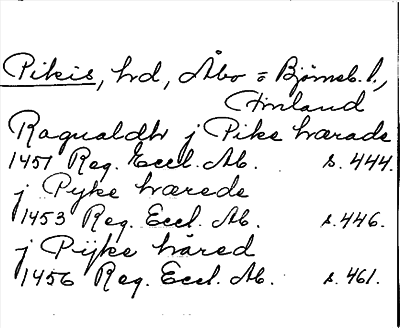 Pikis, hd, Åbo = Björneb. l.,
Finland
Ragualdh j Pike hærads
1451 Reg. Eccl. Ab. s. 444.
j Pyke hærede
1453 Reg. Eccl. Ab. s. 446.
j Pijke håred
1456 Reg. Eccl. Ab. s. 461.